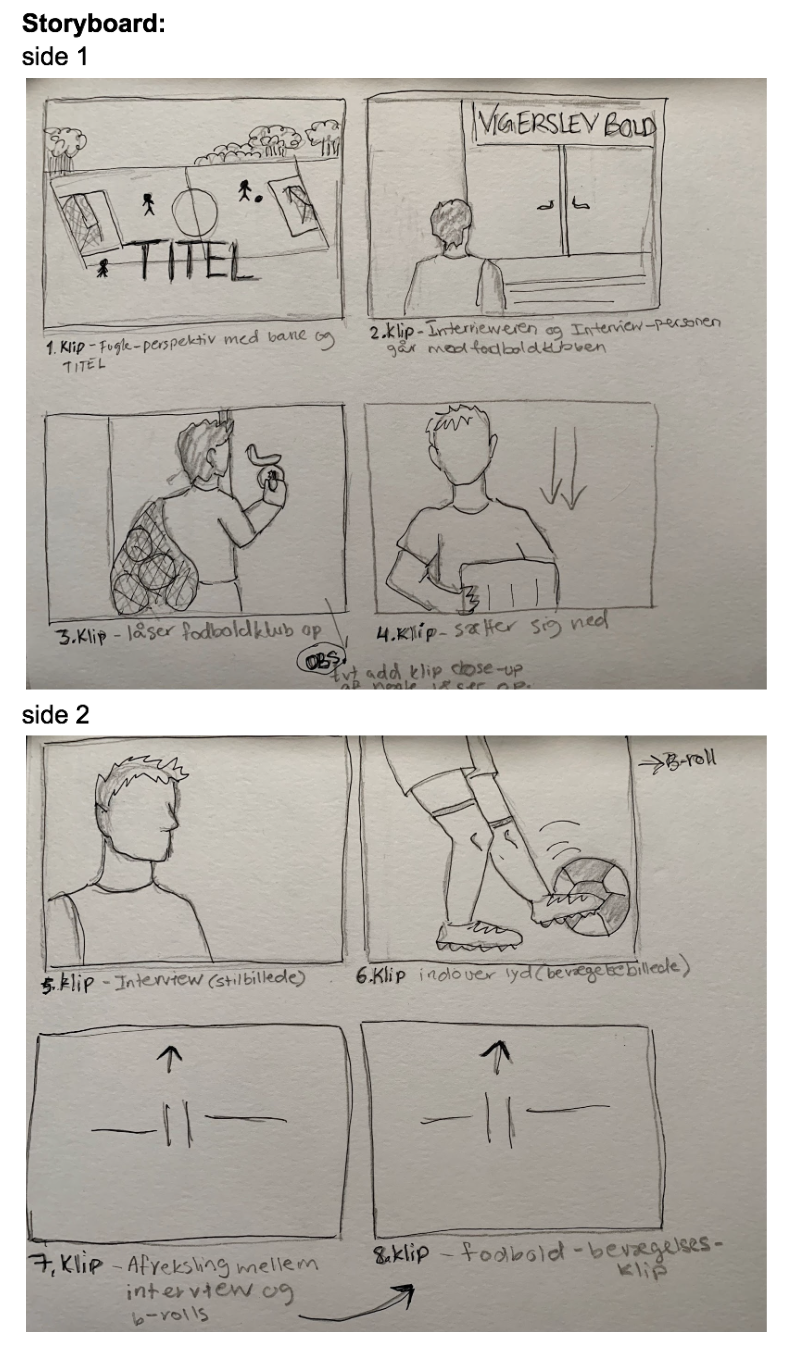 Storyboard:
side 1
TITEL
1. Klip - Fugle-perspektiv med bane og
TITEL
VIGERSLEV BOLD
2. Klip - Interieweren og Interview-personen
går mod fodboldklubben
3. Klip - låser fodboldklub op
OBS!
evt add klip close-up
af nøgle låser op.
4. Klip - sætter sig ned
side 2
5. klip - Interview (stilbillede)
→ B-roll
6. Klip indover lyd (bevægebillede)
7, Klip - Afveksling mellem
interview og
b-rolls
8. klip - fodbold-bevægelses-
klip